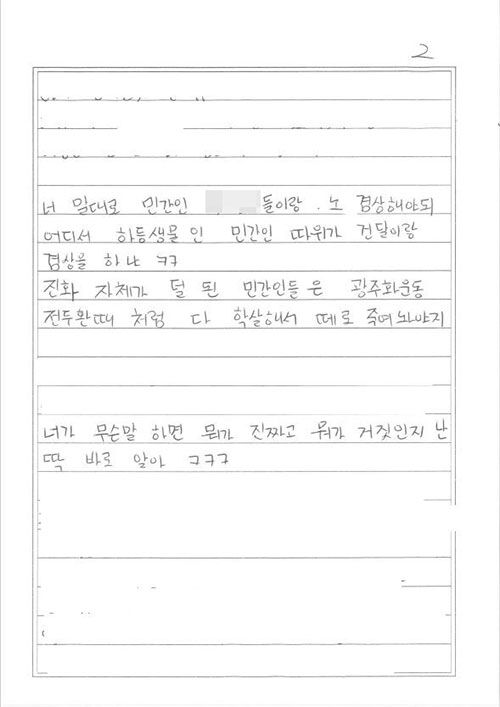 2
너 말대로 민간인 들이랑. 노 겸상해야되
어디서 하등생물 인 민간인 따위가 건달이랑
겸상을 하냐 ㅋㅋ
진화 자체가 덜 된 민간인들은 광주화운동
전두환때 처럼 다 학살해서 떼로 죽여놔야지
너가 무슨말 하면 뭐가 진짜고 뭐가 거짓인지 난
딱 바로 알아 ㅋㅋㅋ